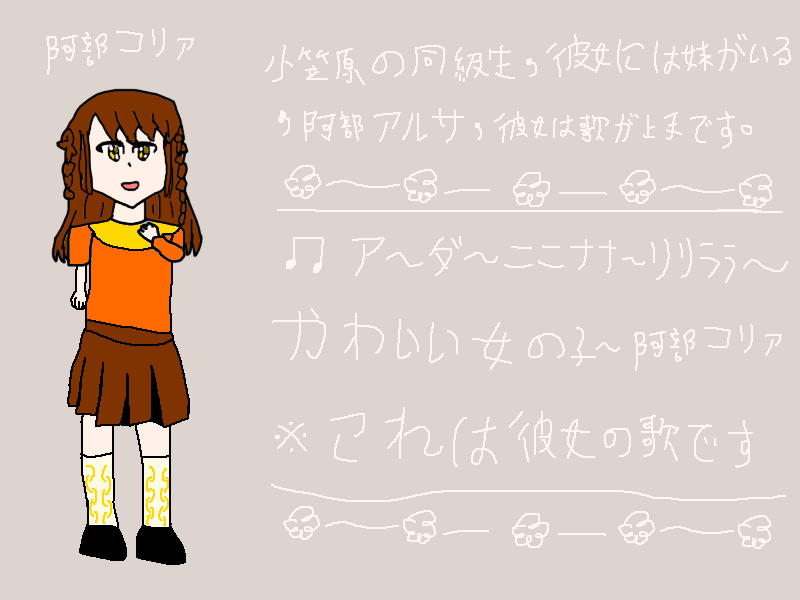 阿部コリア
小笠原の同級生，彼女には妹がいる
，阿部アルサ，彼女は歌が上まです。
♫ ア〜ダ〜ニニナナ〜リリララ〜
かわいい女の子〜阿部コリア
※これは彼女の歌です